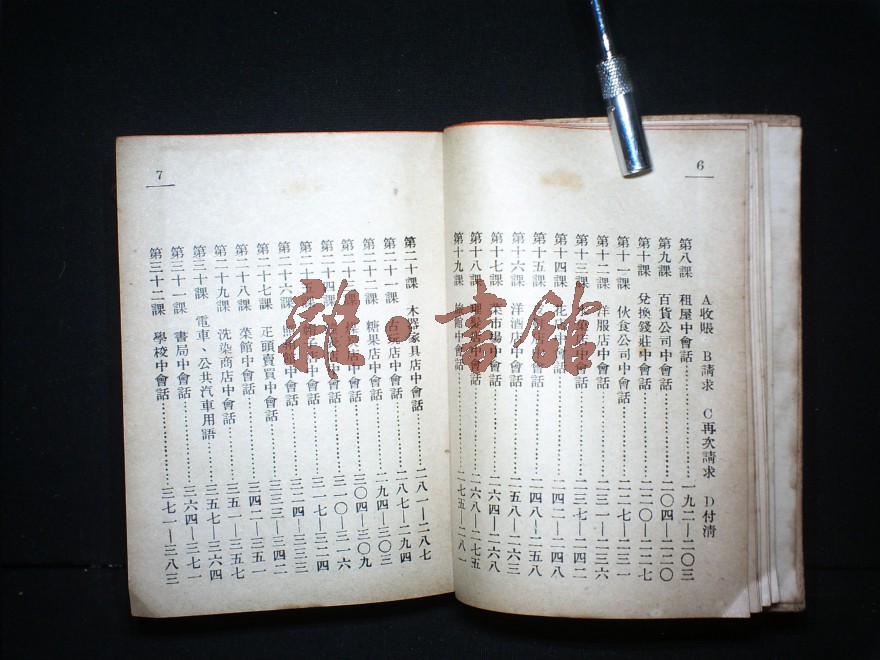 6
A收賬 B請求 C再次請求 D付清
第八課 租屋中會話……………一九二—二〇三
第九課 百貨公司中會話……………二〇四—二二〇
第十課 兌換錢莊中會話……………二二〇—二二七
第十一課 伙食公司中會話……………二二七—二三一
第十二課 洋服店中會話……………二三一—二三六
第十三課 店中會話……………二三七—二四二
第十四課 花店中會話……………二四二—二四八
第十五課 店中會話……………二四八—二五八
第十六課 洋酒店中會話……………二五八—二六三
第十七課 菜市場中會話……………二六四—二六八
第十八課 理髮店中會話……………二六八—二七五
第十九課 旅館中會話……………二七五—二八一
7
第二十課 木器家具店中會話……………二八一—二八七
第二十一課 古玩店中會話……………二八七—二九四
第二十二課 糖果店中會話……………二九四—三〇三
第二十三課 店中會話……………三〇四—三〇九
第二十四課 店中會話……………三一〇—三一六
第二十五課 帽子店中會話……………三一七—三二四
第二十六課 照相館中會話……………三二四—三三三
第二十七課 疋頭賣買中會話……………三三三—三四二
第二十八課 菜館中會話……………三四二—三五一
第二十九課 洗染商店中會話……………三五一—三五七
第三十課 電車、公共汽車用語……………三五七—三六四
第三十一課 書局中會話……………三六四—三七一
第三十二課 學校中會話……………三七一—三八三
雜·書館